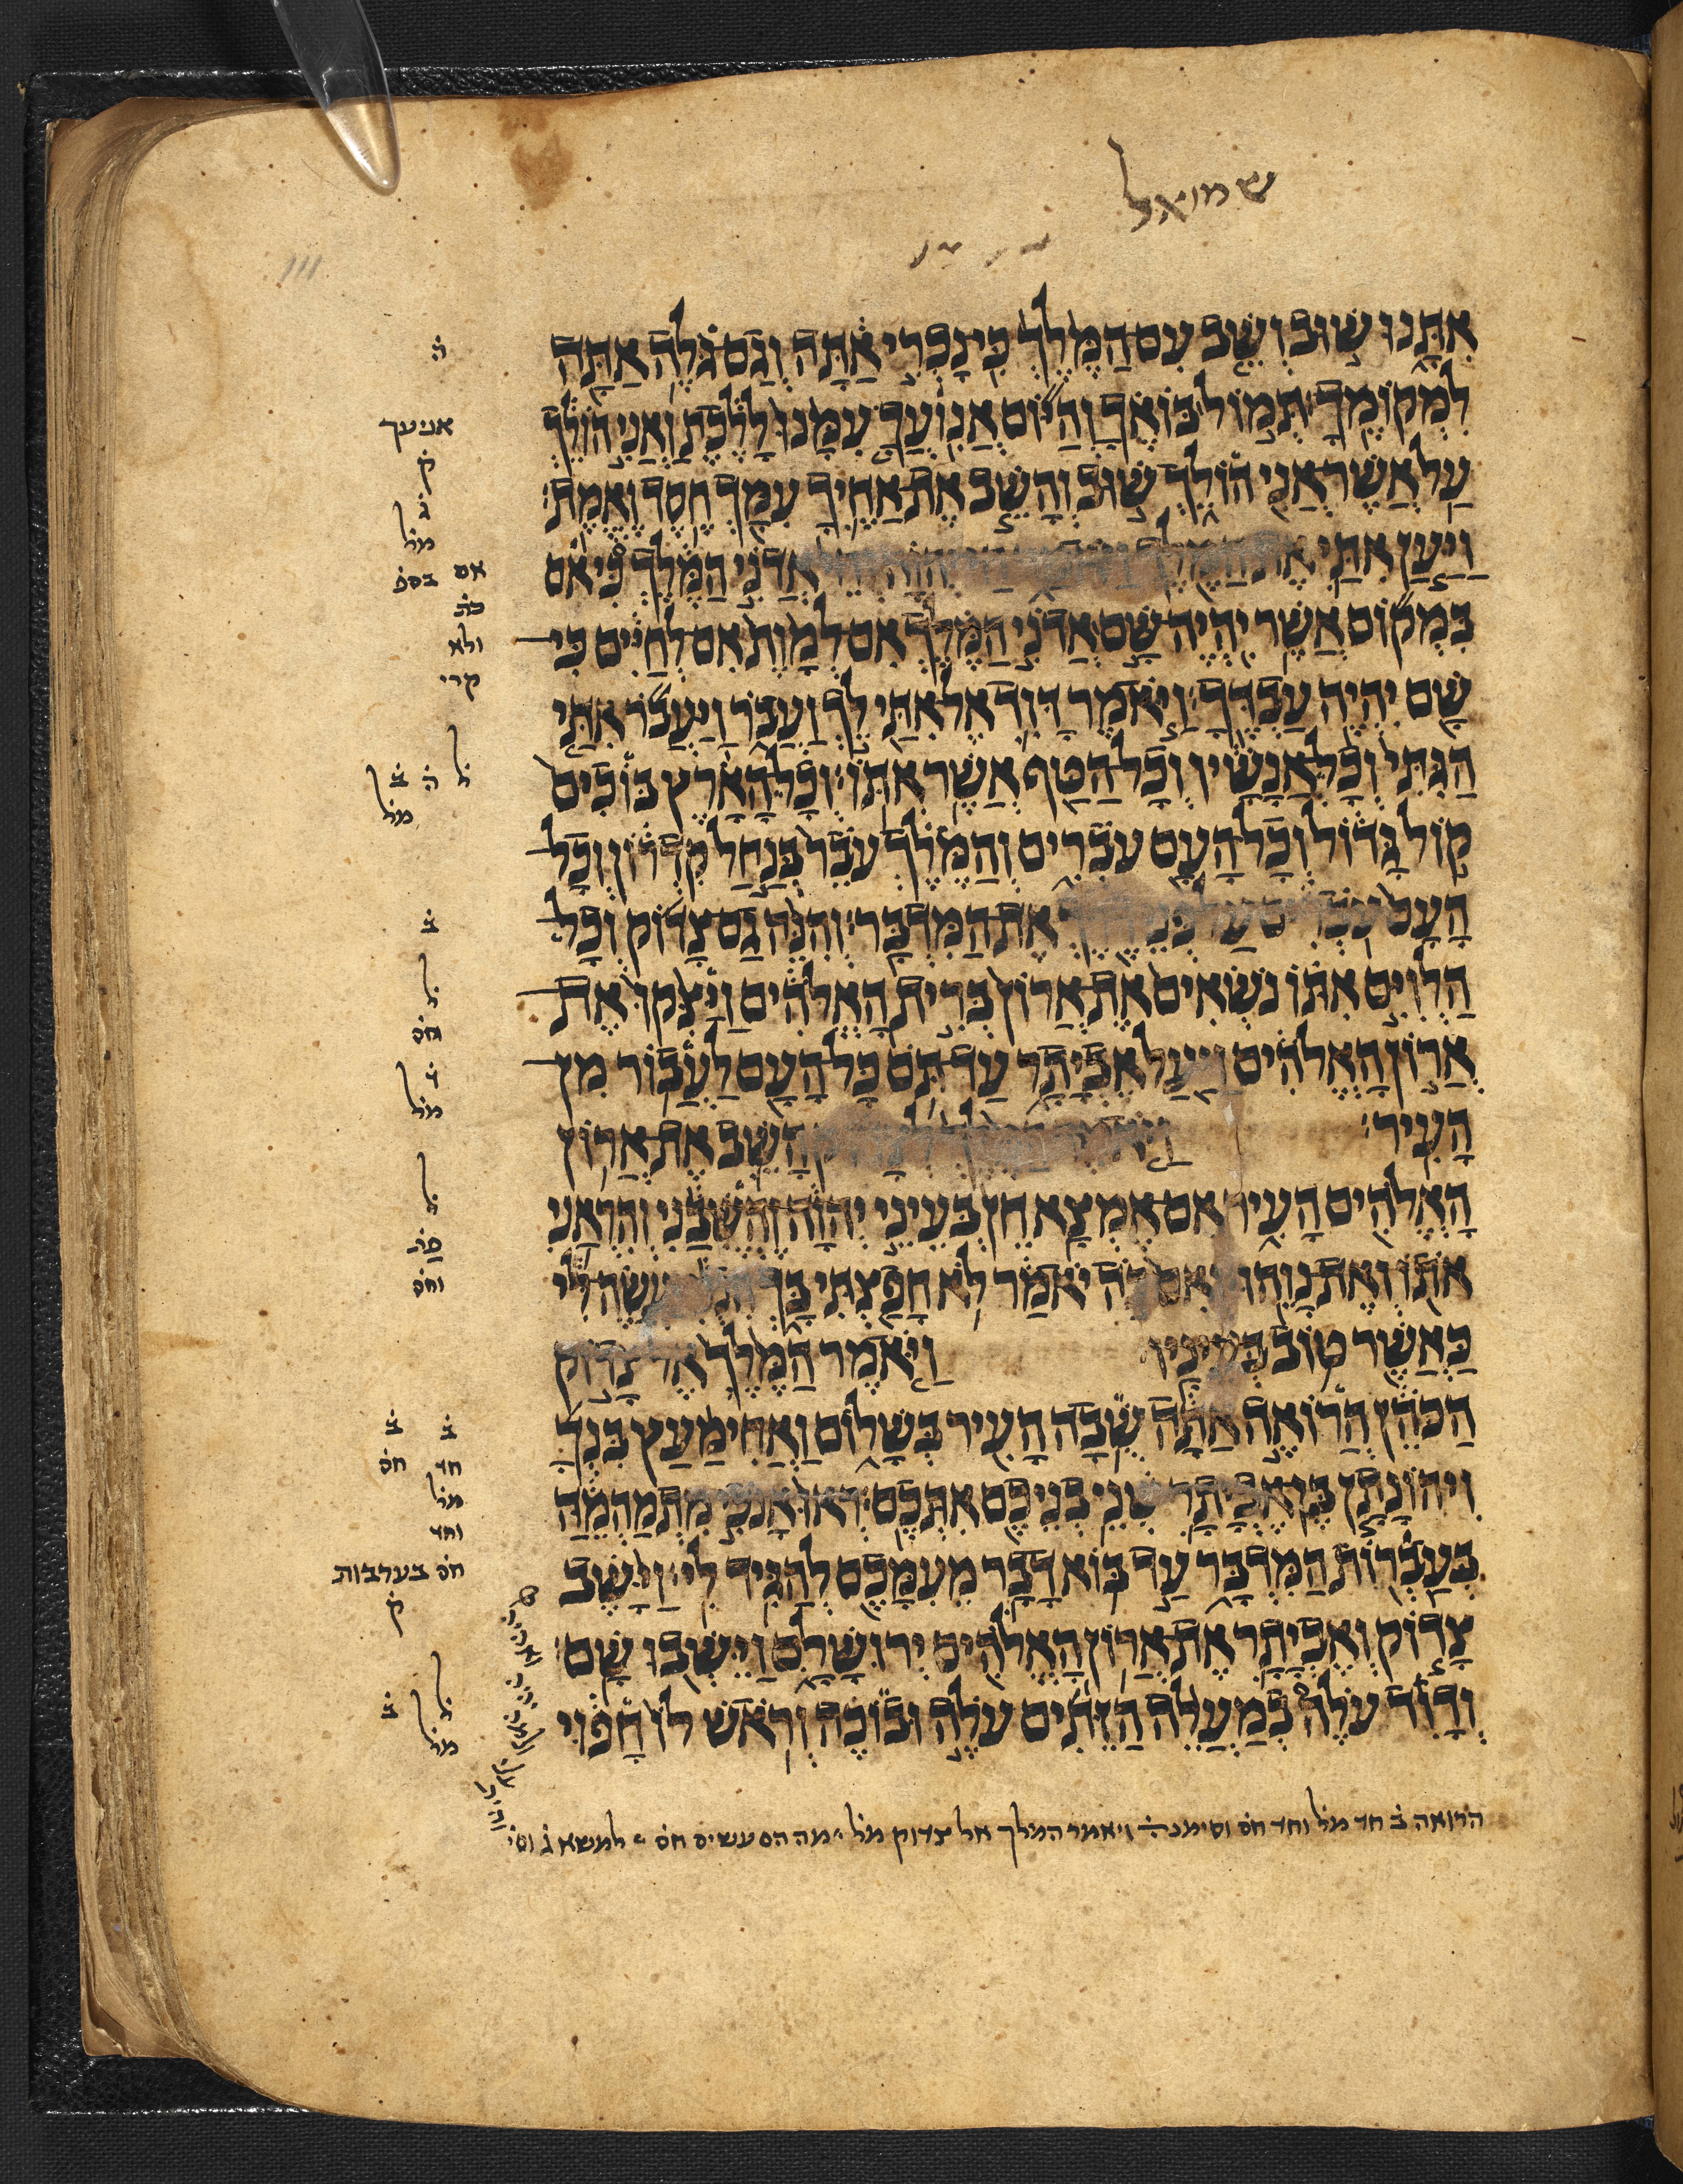 שמואל
אִתָּנוּ שׁוּב וְשֵׁב עִם הַמֶּלֶךְ כִּי נָכְרִי אַתָּה וְגַם גֹּלֶה אַתָּה
לִמְקוֹמֶךָ׃ תְּמוֹל בּוֹאֶךָ וְהַיּוֹם אֲנִועֲךָ עִמָּנוּ לָלֶכֶת וַאֲנִי הוֹלֵךְ
עַל אֲשֶׁר אֲנִי הוֹלֵךְ שׁוּב וְהָשֵׁב אֶת אַחֶיךָ עִמָּךְ חֶסֶד וֶאֱמֶת׃
וַיַּעַן אִתַּי אֶת הַמֶּלֶךְ אֲדֹנִי הַמֶּלֶךְ כִּי אִם
בִּמְקוֹם אֲשֶׁר יִהְיֶה שָּׁם אֲדֹנִי הַמֶּלֶךְ אִם לְמָוֶת אִם לְחַיִּים כִּי
שָׁם יִהְיֶה עַבְדֶּךָ׃ וַיֹּאמֶר דָּוִד אֶל אִתַּי לֵךְ וַעֲבֹר וַיַּעֲבֹר אִתַּי
הַגִּתִּי וְכָל אֲנָשָׁיו וְכָל הַטַּף אֲשֶׁר אִתּוֹ׃ וְכָל הָאָרֶץ בּוֹכִים
קוֹל גָּדוֹל וְכָל הָעָם עֹבְרִים וְהַמֶּלֶךְ עֹבֵר בְּנַחַל קִדְרוֹן וְכָל
הָעָם עֹבְרִים עַל פְּנֵי דֶרֶךְ אֶת הַמִּדְבָּר׃ וְהִנֵּה גַם צָדוֹק וְכָל
הַלְוִיִּם אִתּוֹ נֹשְׂאִים אֶת אֲרוֹן בְּרִית הָאֱלֹהִים וַיַּצִּקוּ אֶת
אֲרוֹן הָאֱלֹהִים וַיַּעַל אֶבְיָתָר עַד תֹּם כָּל הָעָם לַעֲבוֹר מִן
הָעִיר׃ וַיֹּאמֶר הַמֶּלֶךְ לְצָדוֹק הָשֵׁב אֶת אֲרוֹן
הָאֱלֹהִים הָעִיר אִם אֶמְצָא חֵן בְּעֵינֵי יְהוָה וֶהֱשִׁבַנִי וְהִרְאַנִי
אֹתוֹ וְאֶת נָוֵהוּ׃ וְאִם כֹּה יֹאמַר לֹא חָפַצְתִּי בָּךְ יַעֲשֶׂה לִּי
כַּאֲשֶׁר טוֹב בְּעֵינָיו׃ וַיֹּאמֶר הַמֶּלֶךְ אֶל צָדוֹק
הַכֹּהֵן הֲרוֹאֶה אַתָּה שֻׁבָה הָעִיר בְּשָׁלוֹם וַאֲחִימַעַץ בִּנְךָ
וִיהוֹנָתָן בֶּן אֶבְיָתָר שְׁנֵי בְנֵיכֶם אִתְּכֶם׃ רְאוּ אָנֹכִי מִתְמַהְמֵהַּ
בְּעַבְרוֹת הַמִּדְבָּר עַד בּוֹא דָבָר מֵעִמָּכֶם לְהַגִּיד לִי׃ וַיָּשֶׁב
צָדוֹק וְאֶבְיָתָר אֶת אֲרוֹן הָאֱלֹהִים יְרוּשָׁלִָם וַיֵּשְׁבוּ שָׁם׃
וְדָוִד עֹלֶה בְמַעֲלֵה הַזֵּתִים עֹלֶה וּבוֹכֶה וְרֹאשׁ לוֹ חָפוּי
הׄ
אניעך
קׄ
גׄ
מלׄ
אם בספׄ
כתׄ
ולא
קרי
לׄ הׄ בׄ
מלׄ
בׄ
לׄ
חסׄ
דׄ
מלׄ
לׄ
וחסׄ
בׄ בׄ
חד חסׄ
מלׄ
וחד
חסׄ בערבות
קׄ
לׄ בׄ
מלׄ
הרואה בׄ חד מלׄ וחד חסׄ וסימנהׄ ויאמר המלך אל צדוק מלׄ מה הם עשים חסׄ למשא גׄ וסיׄ